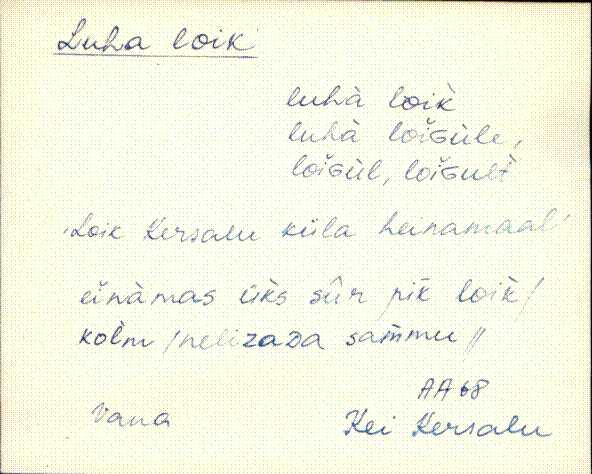 Luha loik
luhà loik̀
luhà loiGüle,
loiGül, loiGult
'Loik Kersalu küla heinamaal'
einàmas ük̀s sûr pik̀ loik̀/
kolm/nelizaDa sam̀mu//
AA 68
Vana
Kei Kersalu